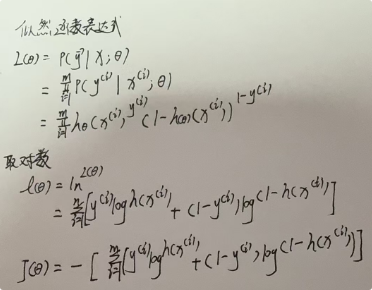 似然函数表达式
L(θ) = P(y⃗ | x; θ)
= ∏_{i=1}^{m} P(y^{(i)} | x^{(i)}; θ)
= ∏_{i=1}^{m} h_θ(x^{(i)})^{y^{(i)}} (1-h_θ(x^{(i)}))^{1-y^{(i)}}
取对数
ℓ(θ) = ln^{L(θ)}
= ∑_{i=1}^{m} [y^{(i)} log^{h(x^{(i)})} + (1-y^{(i)}) log^{(1-h(x^{(i)}))}]
J(θ) = - [ ∑_{i=1}^{m} [y^{(i)} log^{h(x^{(i)})} + (1-y^{(i)}) log^{(1-h(x^{(i)}))}]